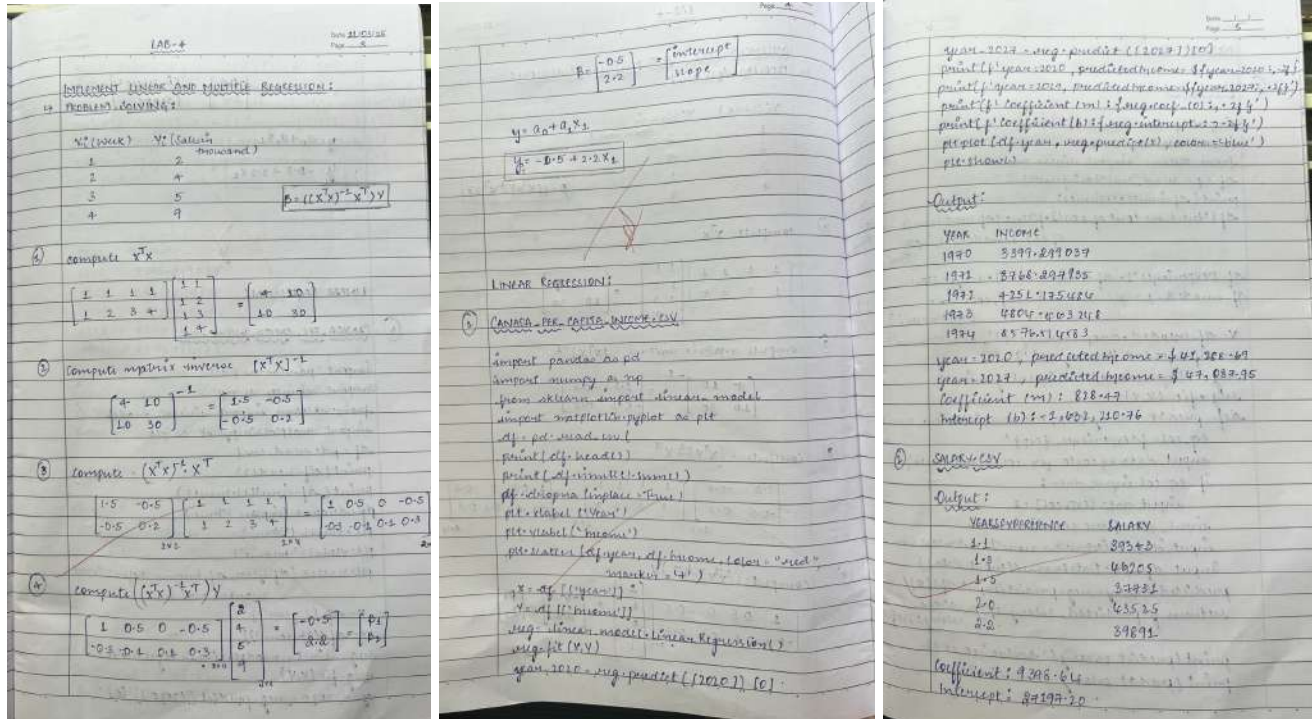 LAB-4
Date 21/03/25
Page 3
IMPLEMENT LINEAR AND MULTIPLE REGRESSION:
PROBLEM SOLVING:
Xi(Week) Yi(Sales in thousand)
1 2
2 4
3 5
4 9
β = ((XᵀX)⁻¹Xᵀ)Y
① compute XᵀX
[1 1 1 1
1 2 3 4] [1 1
1 2
1 3
1 4] = [4 10
10 30]
② compute matrix inverse [XᵀX]⁻¹
[4 10
10 30]⁻¹ = [1.5 -0.5
-0.5 0.2]
③ compute (XᵀX)⁻¹Xᵀ
[1.5 -0.5
-0.5 0.2] 2x2 [1 1 1 1
1 2 3 4] 2x4 = [1 0.5 0 -0.5
-0.3 -0.1 0.1 0.3]
④ compute ((XᵀX)⁻¹Xᵀ)Y
[1 0.5 0 -0.5
-0.3 -0.1 0.1 0.3] [2
4
5
9] = [-0.5
2.2] = [β1
β2]
Page 4
β = [-0.5
2.2] = [intercept
slope]
y = a₀ + a₁x₁
y = -0.5 + 2.2x₁
LINEAR REGRESSION:
① CANADA_PER_CAPITA_INCOME.CSV
import pandas as pd
import numpy as np
from sklearn import linear_model
import matplotlib.pyplot as plt
df = pd.read_csv(
print(df.head())
print(df.isnull().sum())
df.dropna(inplace=True)
plt.xlabel('Year')
plt.ylabel('Income')
plt.scatter(df.year, df.income, color="red",
marker='+')
X = df[['year']]
Y = df[['income']]
reg = linear_model.LinearRegression()
reg.fit(X,Y)
year_2020 = reg.predict([[2020]])[0]
Date
Page 5
year_2027 = reg.predict([[2027]])[0]
print(f'year=2020, predictedIncome=${year_2020:,.2f}')
print(f'year=2027, predictedIncome=${year_2027:,.2f}')
print(f'Coefficient (m): {reg.coef_[0]:,.2f}')
print(f'Coefficient (b): {reg.intercept_:,.2f}')
plt.plot(df.year, reg.predict(X), color='blue')
plt.show()
Output:
YEAR INCOME
1970 3399.299037
1971 3768.297935
1972 4251.175484
1973 4804.463248
1974 8576.514583
year=2020, predictedIncome = $ 41,288.69
year=2027, predictedIncome = $ 47,087.95
Coefficient (m): 828.47
Intercept (b): -1,632,210.76
② SALARY.CSV
Output:
YEARSEXPERIENCE SALARY
1.1 39343
1.3 46205
1.5 37731
2.0 43525
2.2 39891
Coefficient: 9398.64
Intercept: 27197.20